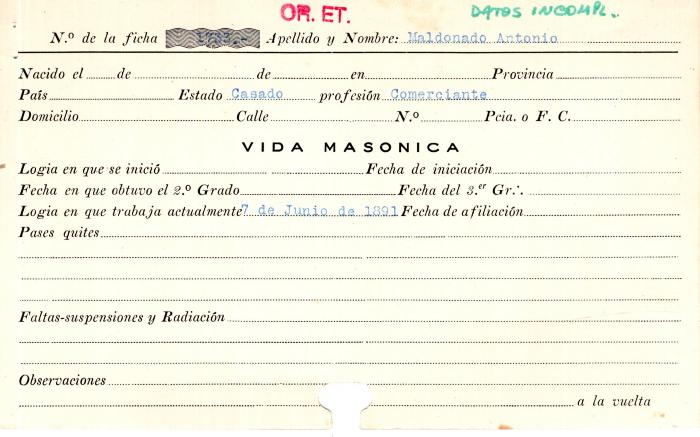 OR. ET. DATOS INCOMPL.
N.º de la ficha Apellido y Nombre: Maldonado Antonio
Nacido el de de en Provincia
País Estado Casado profesión Comerciante
Domicilio Calle N.º Pcia. o F. C.
VIDA MASONICA
Logia en que se inició Fecha de iniciación
Fecha en que obtuvo el 2.º Grado Fecha del 3.er Gr∴
Logia en que trabaja actualmente 7 de Junio de 1891 Fecha de afiliación
Pases quites
Faltas-suspensiones y Radiación
Observaciones
a la vuelta